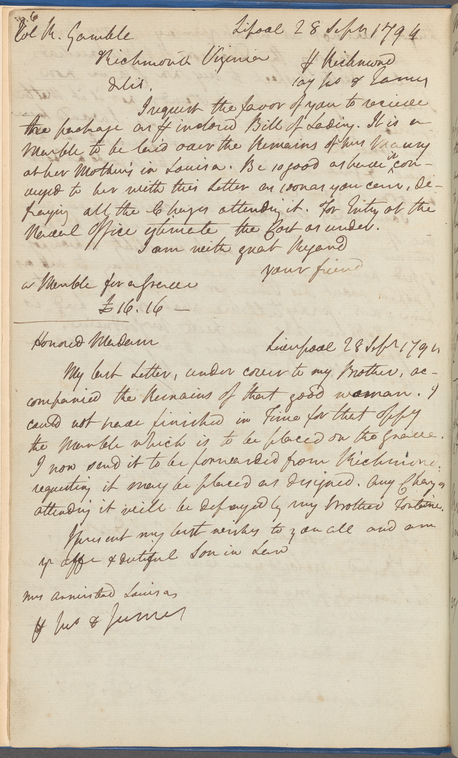 Col R. Gamble Lipool 28 Sepr 1794
Richmond Virginia
Dr Sir. ⅌ Richmond
I request the favor of you to receive
package as ⅌ inclosed Bill of Lading. It is a
Marble to be laid over the Remains of Mrs Maury
at her Mother's in Louisa. Be so good as have it con-
veyed to her with this Letter as soon as you can, de-
fraying all the Charges attending it. For Entry at the
Naval Office estimate the Cost as under.
I am with great Regard
your friend
a Marble for a Grave
£16.16 —
Honored Madam Liverpool 28 Sepr 1794
My last Letter, under cover to my Brother, ac-
companied the Remains of that good woman. I
could not have finished in Time for that oppy
the Marble which is to be placed on the Grave.
I now send it to be forwarded from Richmond,
requesting it may be placed as designed. Any Charge
attending it will be defrayed by my Brother Fontaine.
I present my best wishes to you all and am
yr affe & dutiful Son in Law
Mrs Armistead Louisa
⅌ &